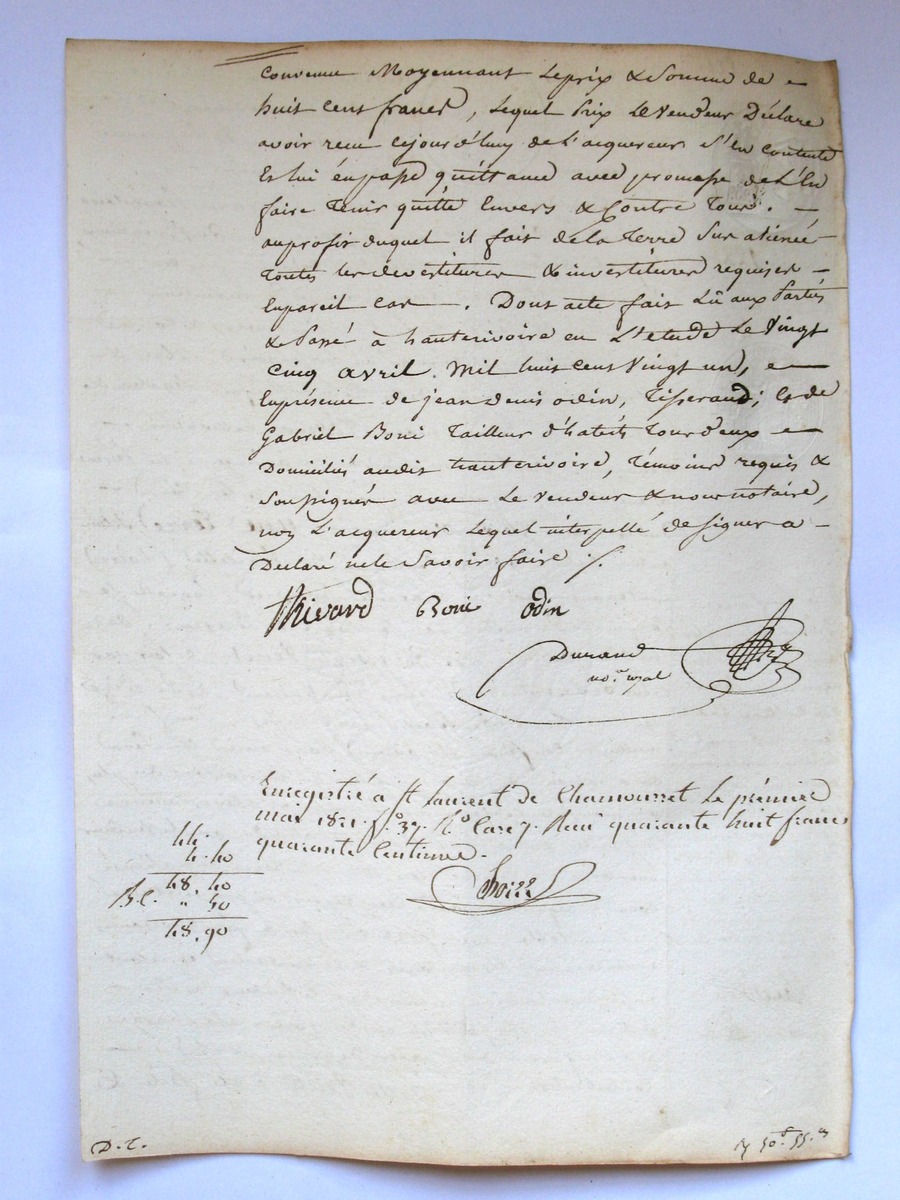 convenue Moyennant le prix & Somme de
huit cent francs, lequel Prix le Vendeur Déclare
avoir reçu cejourd'huy de l'acquereur S'en contente
Et lui en passe quittance avec promesse de l'En
faire Tenir quitte Envers & Contre Tous. —
au profit duquel il fait de la Terre Sus alienée
Toutes les devestitures & investitures requises —
En pareil cas —. Dont acte fait Lû aux Parties
& Passé à hauterivoire en L'etude Le Vingt
Cinq avril. Mil huit cent Vingt un,
En présence de jean denis odin, Tisserand; Et de
Gabriel Boni Tailleur d'habits Tous deux
Domiciliés audit hauterivoire, Témoins requis &
Soussignés avec Le Vendeur & nous notaire,
non L'acquereur Lequel interpellé de Signer a
Declaré ne le Savoir faire ./.
Thivard Boni odin
Durand
no.re royal
Enregistré à St Laurent de Chamousset le premier
mai 1821 f.o 37. R.o Case 7. Reçu quarante huit francs
quarante Centimes.
44.
4.40
48.40
" 50
48.90
D.T.
50.f 55.c